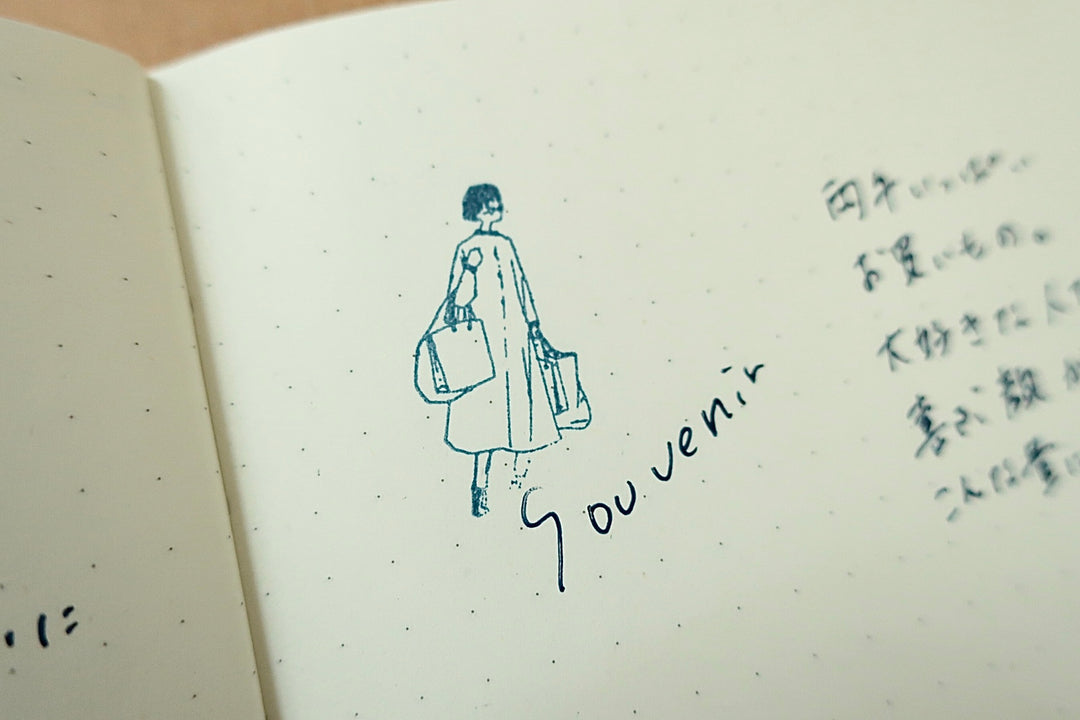 に
Souvenir
両手いっぱい..
お買いもの。
大好きな人
喜ぶ顔が
こんな